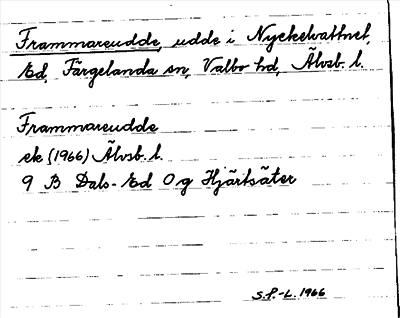 Frammareudde, udde i Nyckelvattnet,
Ed, Färgelanda sn, Valbo hd, Älvsb. l.
Frammareudde
ek (1966) Älvsb. l.
9 B Dals-Ed 0 g Hjärtsäter
S.P.-L. 1966